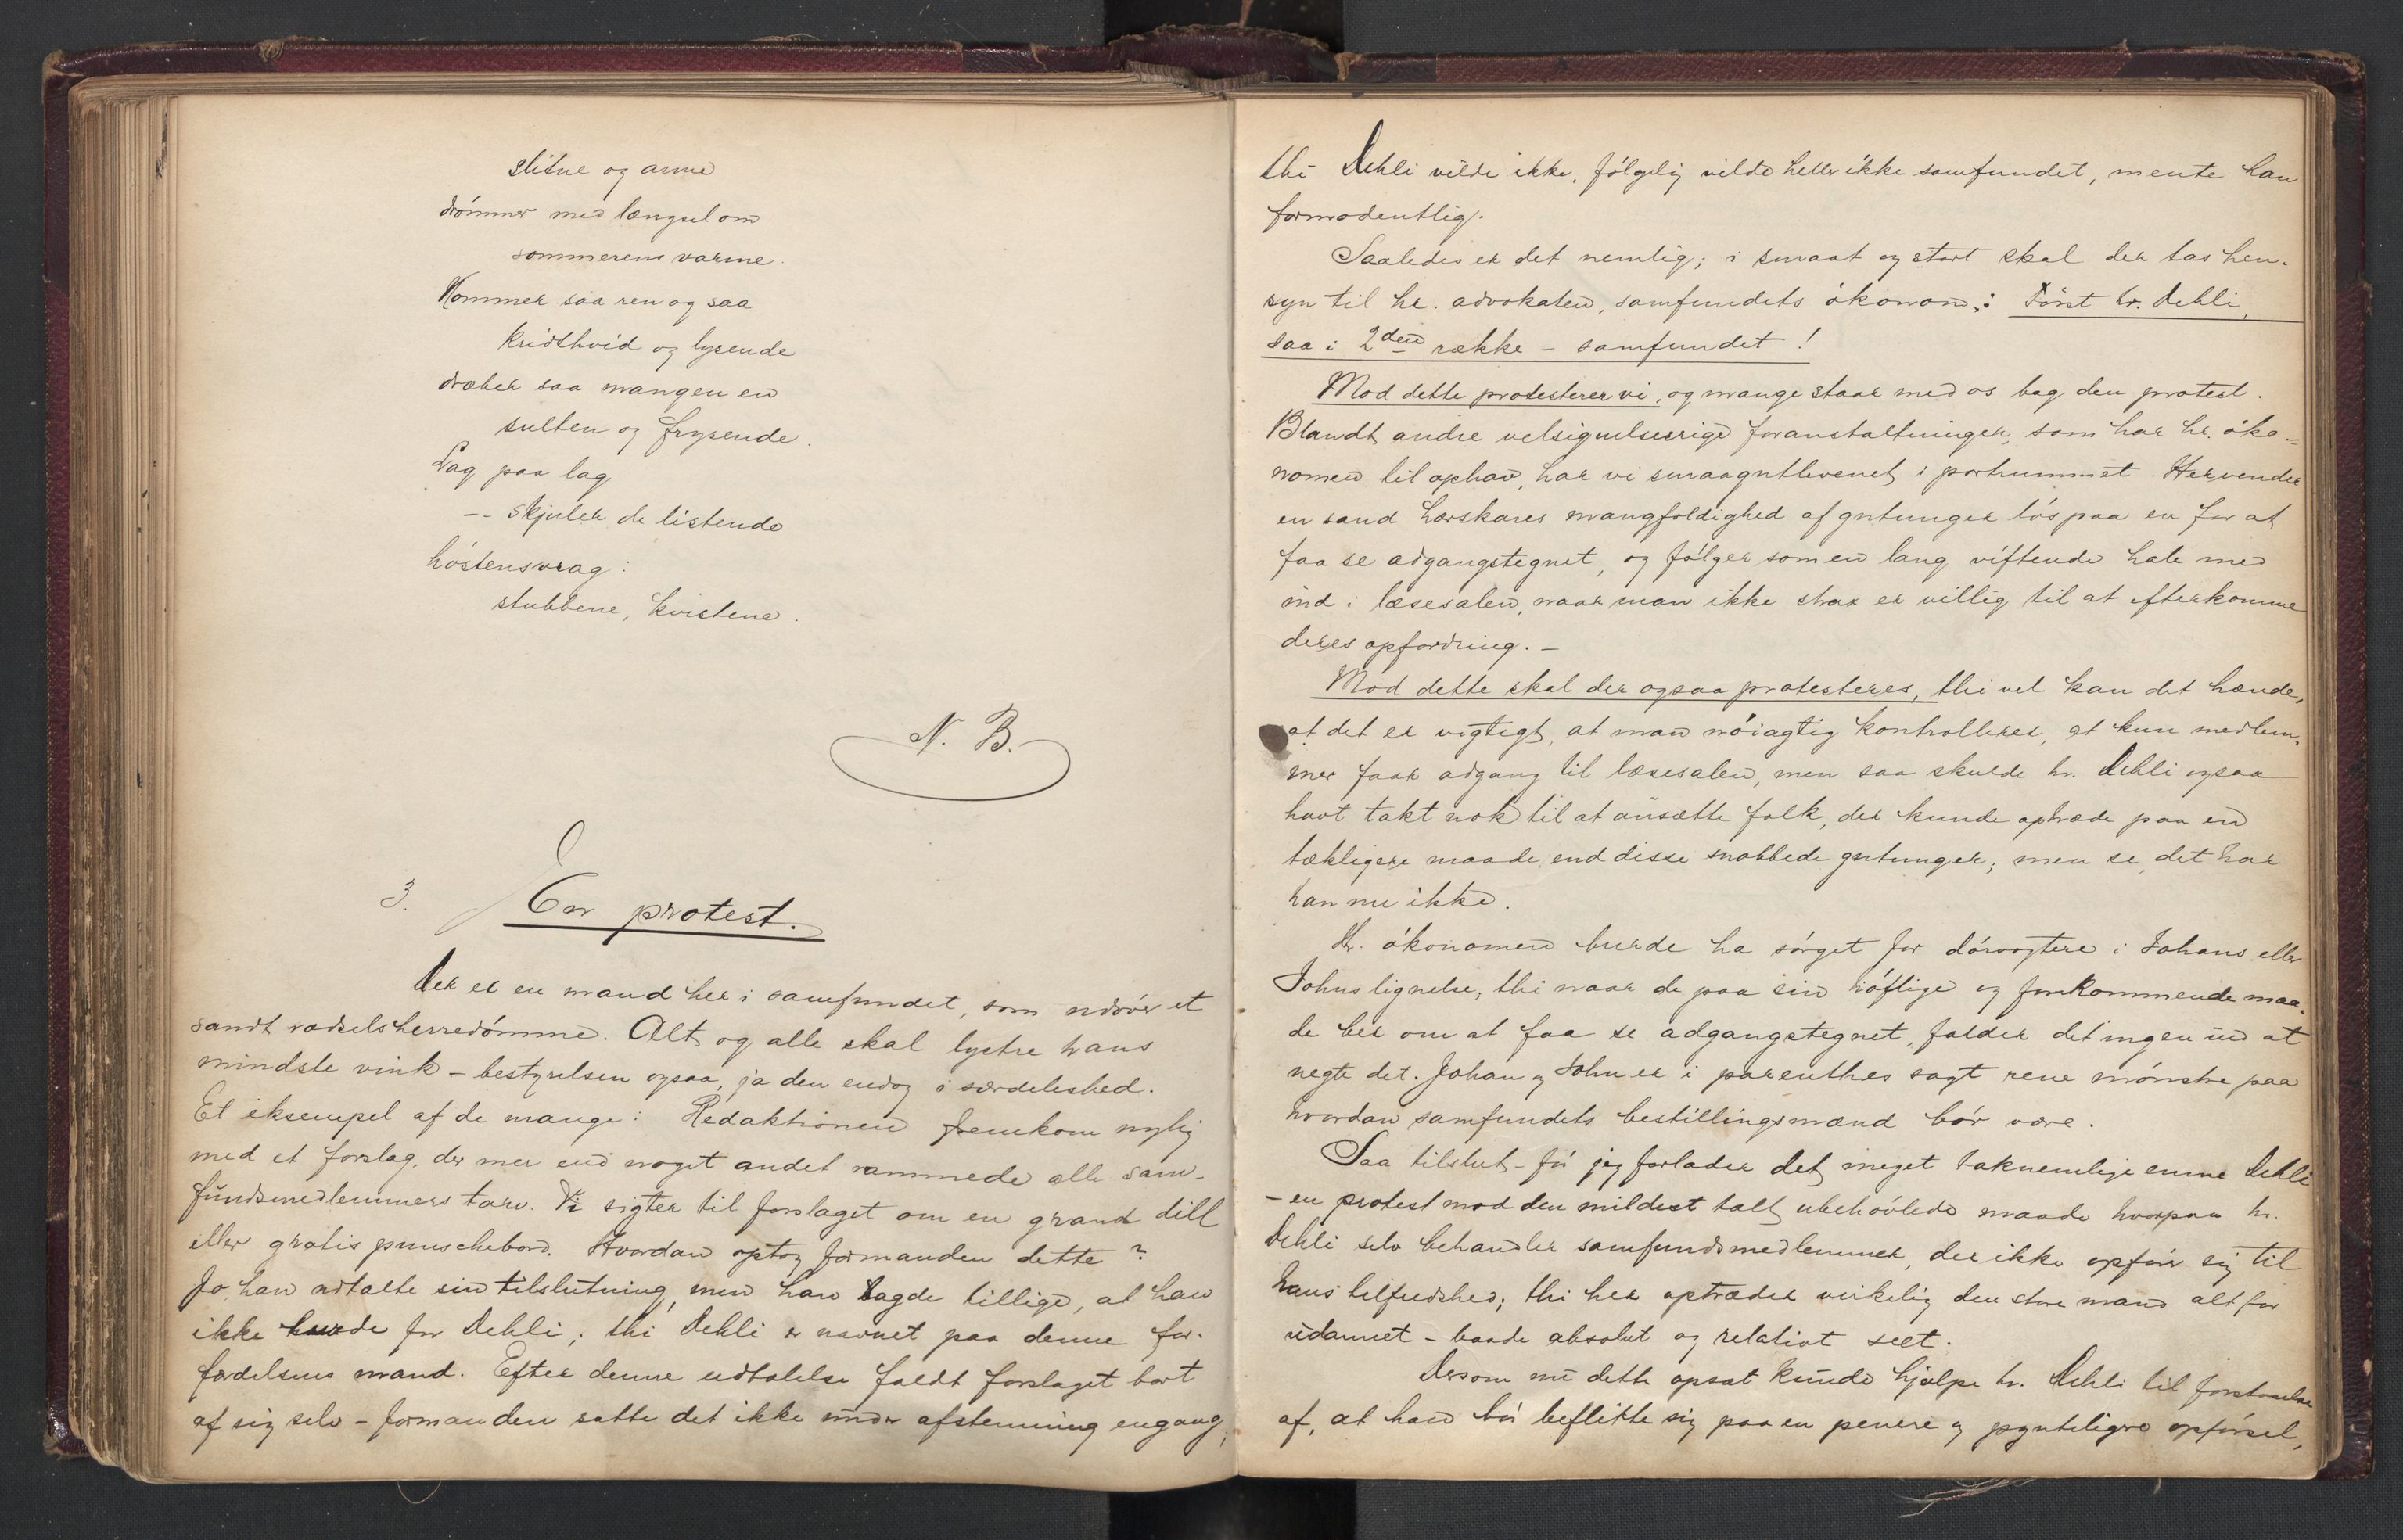 slitne og arme
drömmer med længsel om
sommerens varme.
Kommer saa ren og saa
kridthvid og lysende
dræber saa mangen en
sulten og frysende.
Lag paa lag
-- skjuler de listende
höstens vrag:
stubbene, kvistene.
N. B.
3. En protest.
Der er en mand her i samfundet, som udöver et
sandt rædselsherredömme. Alt og alle skal lystre hans
mindste vink - bestyrelsen ogsaa, ja den endog i særdeleshed.
Et eksempel af de mange: Redaktionen fremkom nylig
med et forslag, der mer end noget andet rammede alle sam-
fundsmedlemmers tarv. Vi sigter til forslaget om en grand dill
eller gratis punschebord. Hvordan optog formanden dette?
Jo, han udtalte sin tilslutning, men han sagde tillige, at han
ikke turde for Dehli; thi Dehli er navnet paa denne for-
færdelsens mand. Efter denne udtalelse faldt forslaget bort
af sig selv - formanden satte det ikke under afstemning engang;
thi Dehli vilde ikke, fölgelig vilde heller ikke samfundet, mente han
formodentlig.
Saaledes er det nemlig; i smaat og stort skal der tas hen-
syn til hr. advokaten, samfundets ökonom: Först hr. Dehli,
saa i 2den række - samfundet!
Mod dette protesterer vi, og mange staar med os bag den protest.
Blandt andre velsignelsesrige foranstaltninger, som har hr. öko-
nomen til ophav, har vi smaagutvæsenet i portrummet. Her vender
en sand hærskares mangfoldighed af gutunger lös paa en for at
faa se adgangstegnet, og fölger som en lang viftende hale med
ind i læsesalen, naar man ikke strax er villig til at efterkomme
deres opfordring. -
Mod dette skal der ogsaa protesteres, thi vel kan det hænde,
at det er vigtigt, at man nöiagtig kontrollerer, at kun medlem-
mer faar adgang til læsesalen, men saa skulde hr. Dehli ogsaa
havt takt nok til at ansætte folk, der kunde optræde paa en
tækligere maade, end disse snobbede gutunger; men se, det har
han nu ikke.
Hr. ökonomen burde ha sörget for dörvogtere i Johans eller
Johns lignelse; thi naar de paa sin höflige og forekommende maa-
de ber om at faa se adgangstegnet, falder det ingen ind at
negte det. Johan og John er i parenthes sagt rene mönstre paa
hvordan samfundets bestillingsmænd bör være.
Saa tilslut - för jeg forlader det meget taknemlige emne Dehli
- en protest mod den mildest talt ubehövlede maade hvorpaa hr.
Dehli selv behandler samfundsmedlemmer, der ikke opförer sig til
hans tilfredshed; thi her optræder virkelig den store mand alt for
udannet - baade absolut og relativt seet.
Dersom nu dette opsat kunde hjælpe hr. Dehli til forstaaelse
af, at han bör beflitte sig paa en penere og pynteligere opförsel,